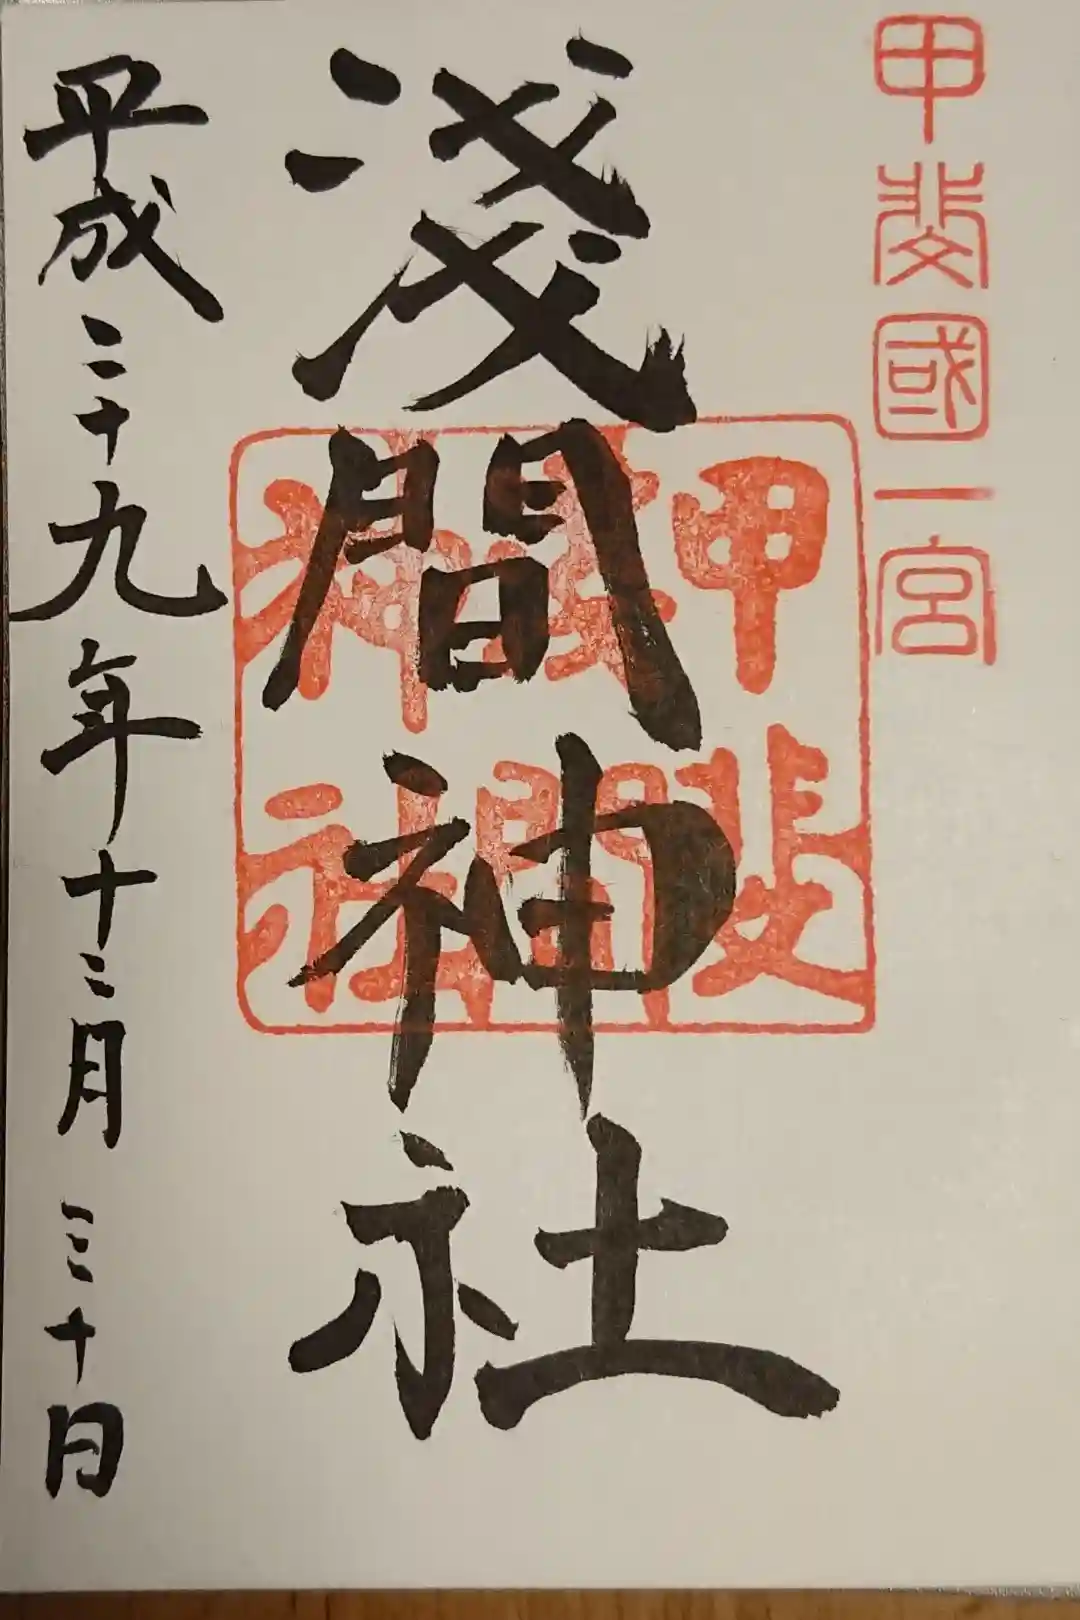 甲斐國一宮
淺間神社
甲斐
淺間
神社
平成二十九年十二月三十日